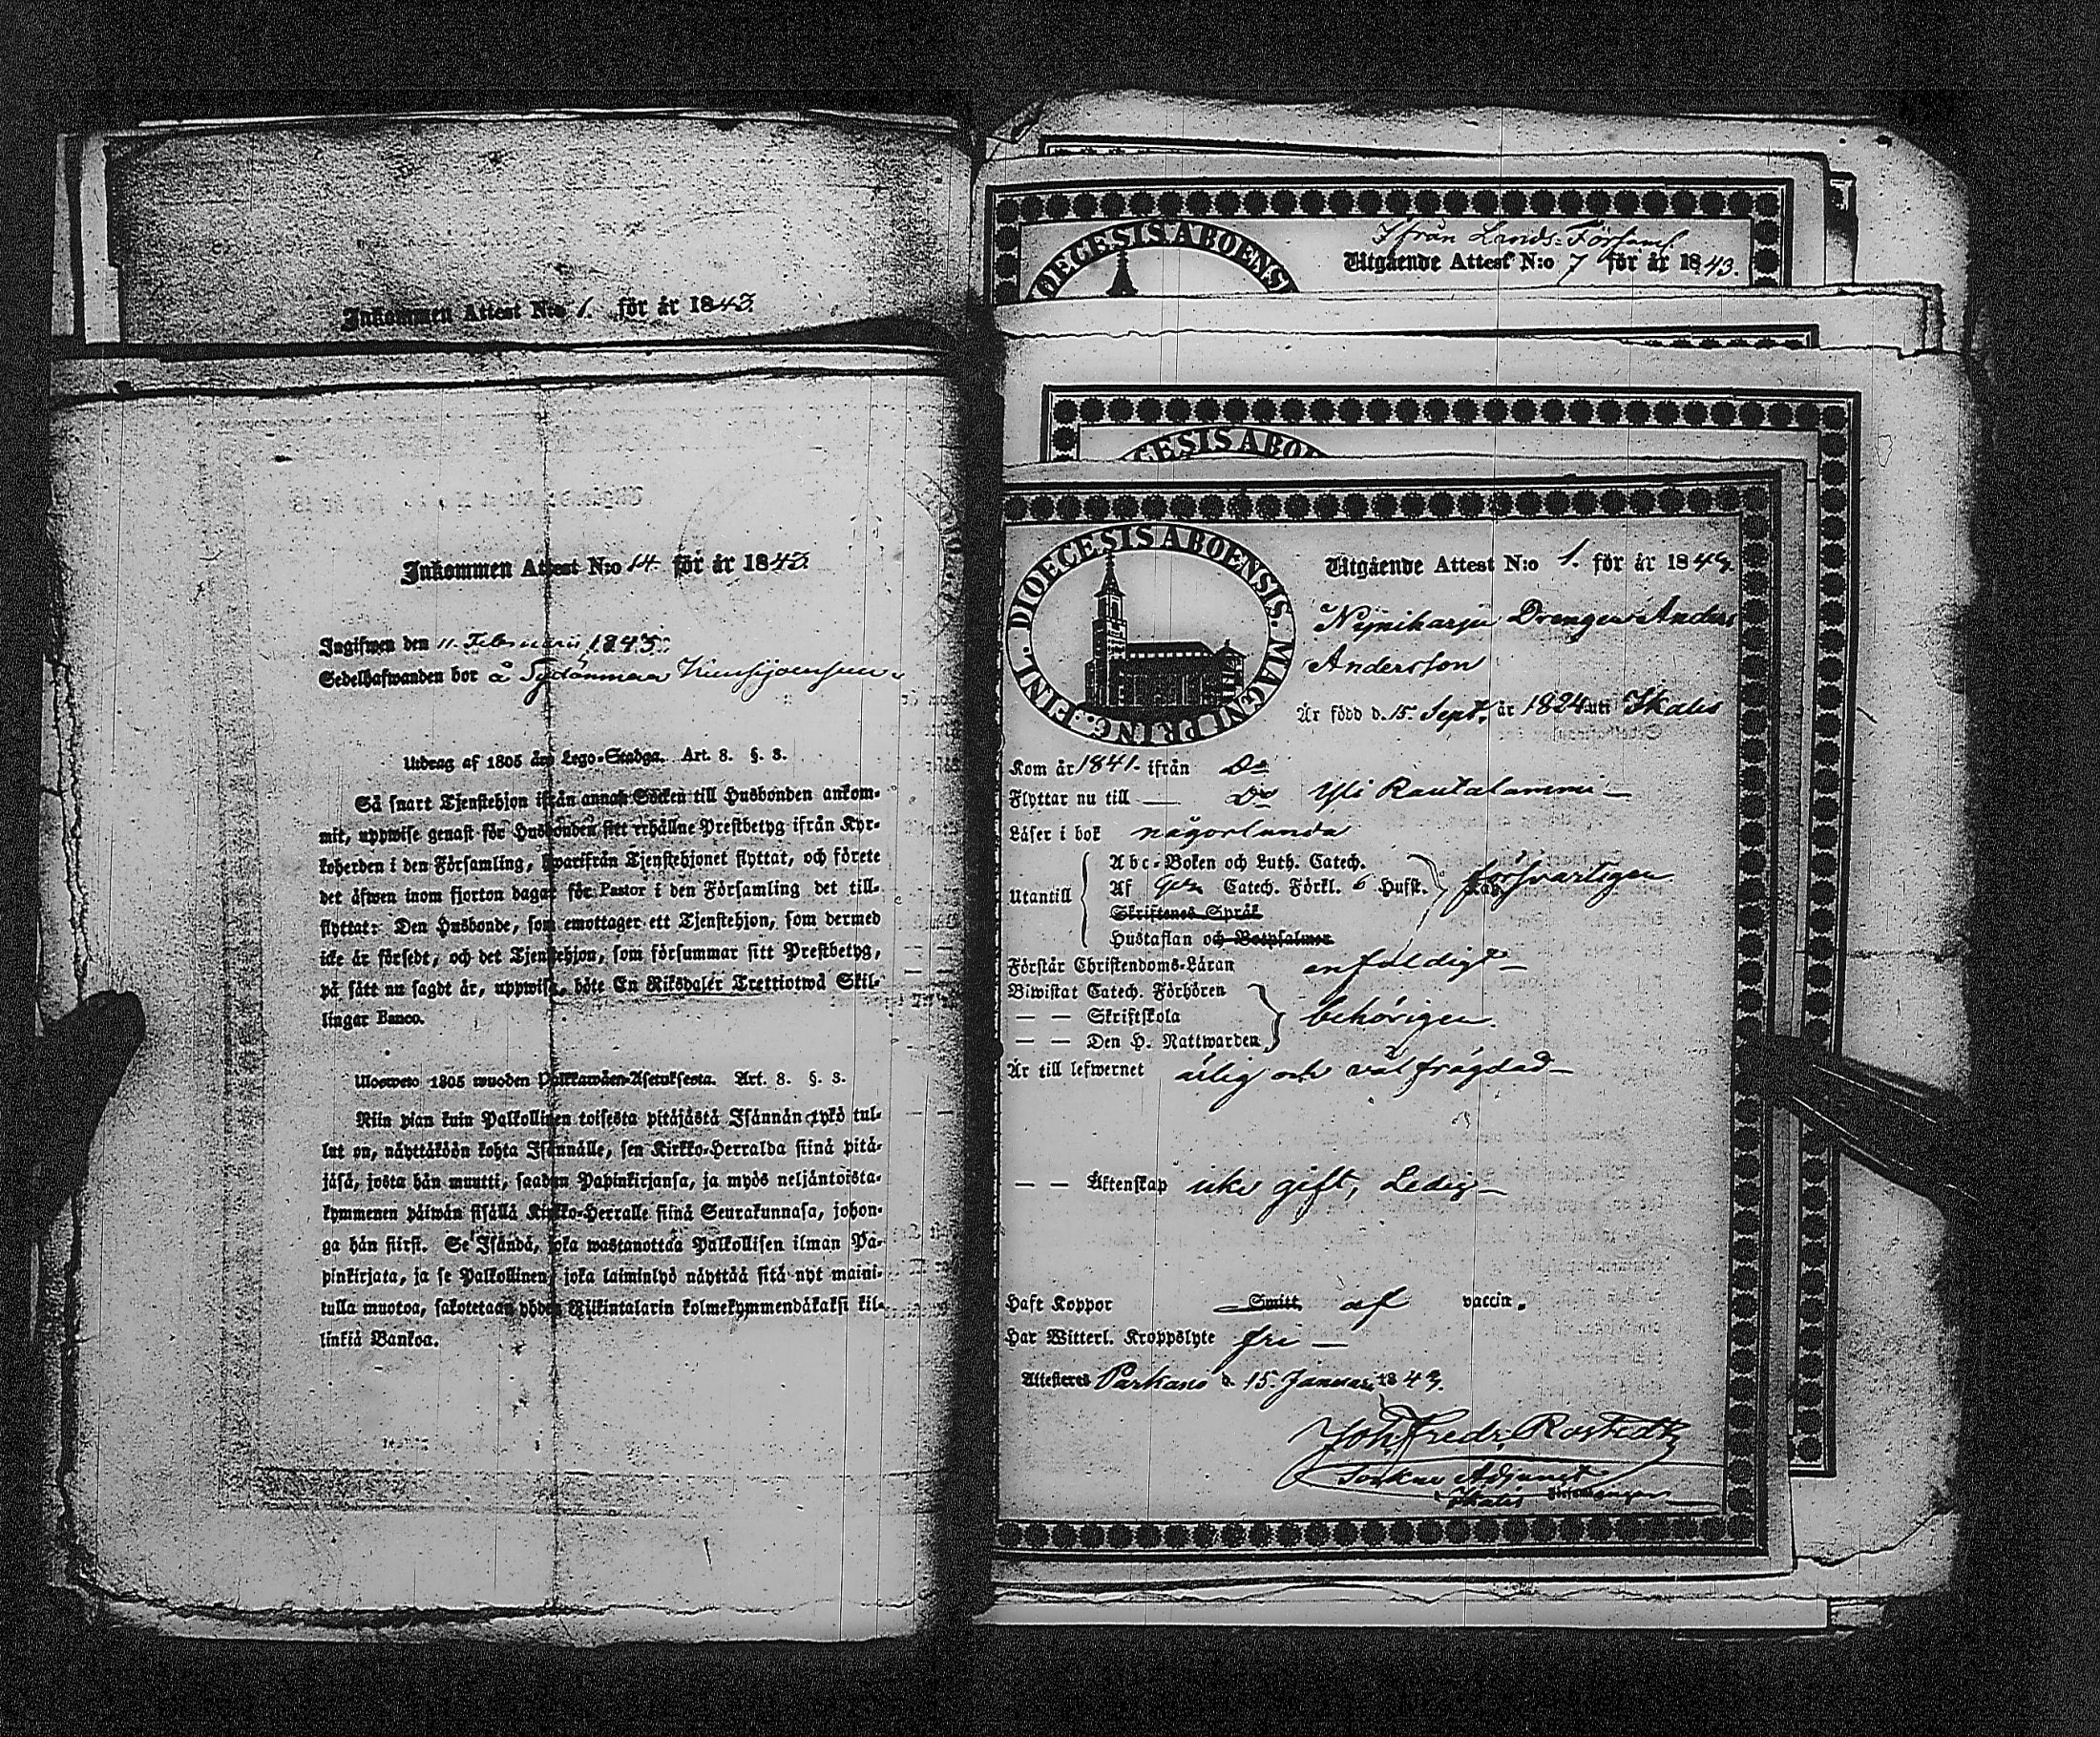 Inkommen Attest N:o 1. för år 1843.
Inkommen Attest N:o 14 för år 1843.
Ingifwen den 11. Februarii 1843.
Sedelhafwanden bor å
Utdrag af 1805 års Lego-Stadga. Art. 8. §. 3.
Så snart Tjenstehjon ifrån annan Socken till Husbonden ankom-
mit, uppwise genast för Husbonden sitt erhållne Prestbetyg ifrån Kyr-
koherden i den Församling, hwarifrån Tjenstehjonet flyttat, och förete
det äfwen inom fjorton dagar för Pastor i den Församling det till-
flyttat: Den Husbonde, som emottager ett Tjenstehjon, som dermed
icke är försedt, och det Tjenstehjon, som försummar sitt Prestbetyg,
på sätt nu sagdt är, uppwisa, böte En Riksdaler Trettiotwå Skil-
lingar Banco.
Wuoswero 1805 wuoden Palkkawäen-Asetuksesta. Art. 8. §. 3.
Niin pian kuin Palkollinen toisesta pitäjästä Isännän tykö tul-
lut on, näyttäköön kohta Isännälle, sen Kirkko-Herralda siinä pitä-
jäsä, josta hän muutti, saadun Papinkirjansa, ja myös neljäntoista-
kymmenen päiwän sisällä Kirkko-Herralle siinä Seurakunnasa, johon-
ga hän siirsi. Se Isändä, joka wastanottaa Palkollisen ilman Pa-
pinkirjata, ja se Palkollinen, joka laiminlyö näyttää sitä nyt maini-
tulla muotoa, sakotetaan yhden Riikintalarin kolmekymmendäkaksi kil-
linkiä Bankoa.
DIOECESIS ABOENSI
I från Lands-Församl
Utgående Attest N:o 7 för år 1843.
CESIS ABO
DIOECESIS ABOENSIS. MAGNI PRINC. FINL.
Utgående Attest N:o 1. för år 1843.
Drengen Anders
Andersson
Är född d. 15. Sept. år 1824 uti Ikalis
Kom år 1841. ifrån Do
Flyttar nu till — Do Yli Rautalammi —
Läser i bok någorlunda
Utantill
Abc-Boken och Luth. Catech.
Af Catech. Förkl. 6 Hufst.
försvarligen
Skriftenes Språk
Hustaflan och Botpsalmer
Förstår Christendoms-Läran enfaldigt —
Biwistat Catech. Förhören
— — Skriftskola
behörigen.
— — Den H. Nattwarden
Är till lefwernet ärlig och väl frägdad —
— — Äktenskap icke gift, Ledig —
Haft Koppor Smitt. af vaccin.
Har Witterl. Kroppslyte fri —
Attesteras Parkano d. 15. Januarii 1843.
Joh. Fredr. Rostedt
Sockne Adjunct
Ikalis